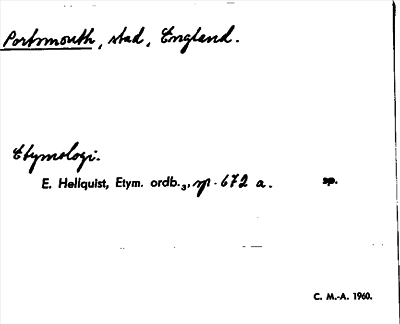 Portsmouth, stad, England.
Etymologi.
E. Hellquist, Etym. ordb.₃, sp. 672 a. sp.
C. M.-A. 1960.